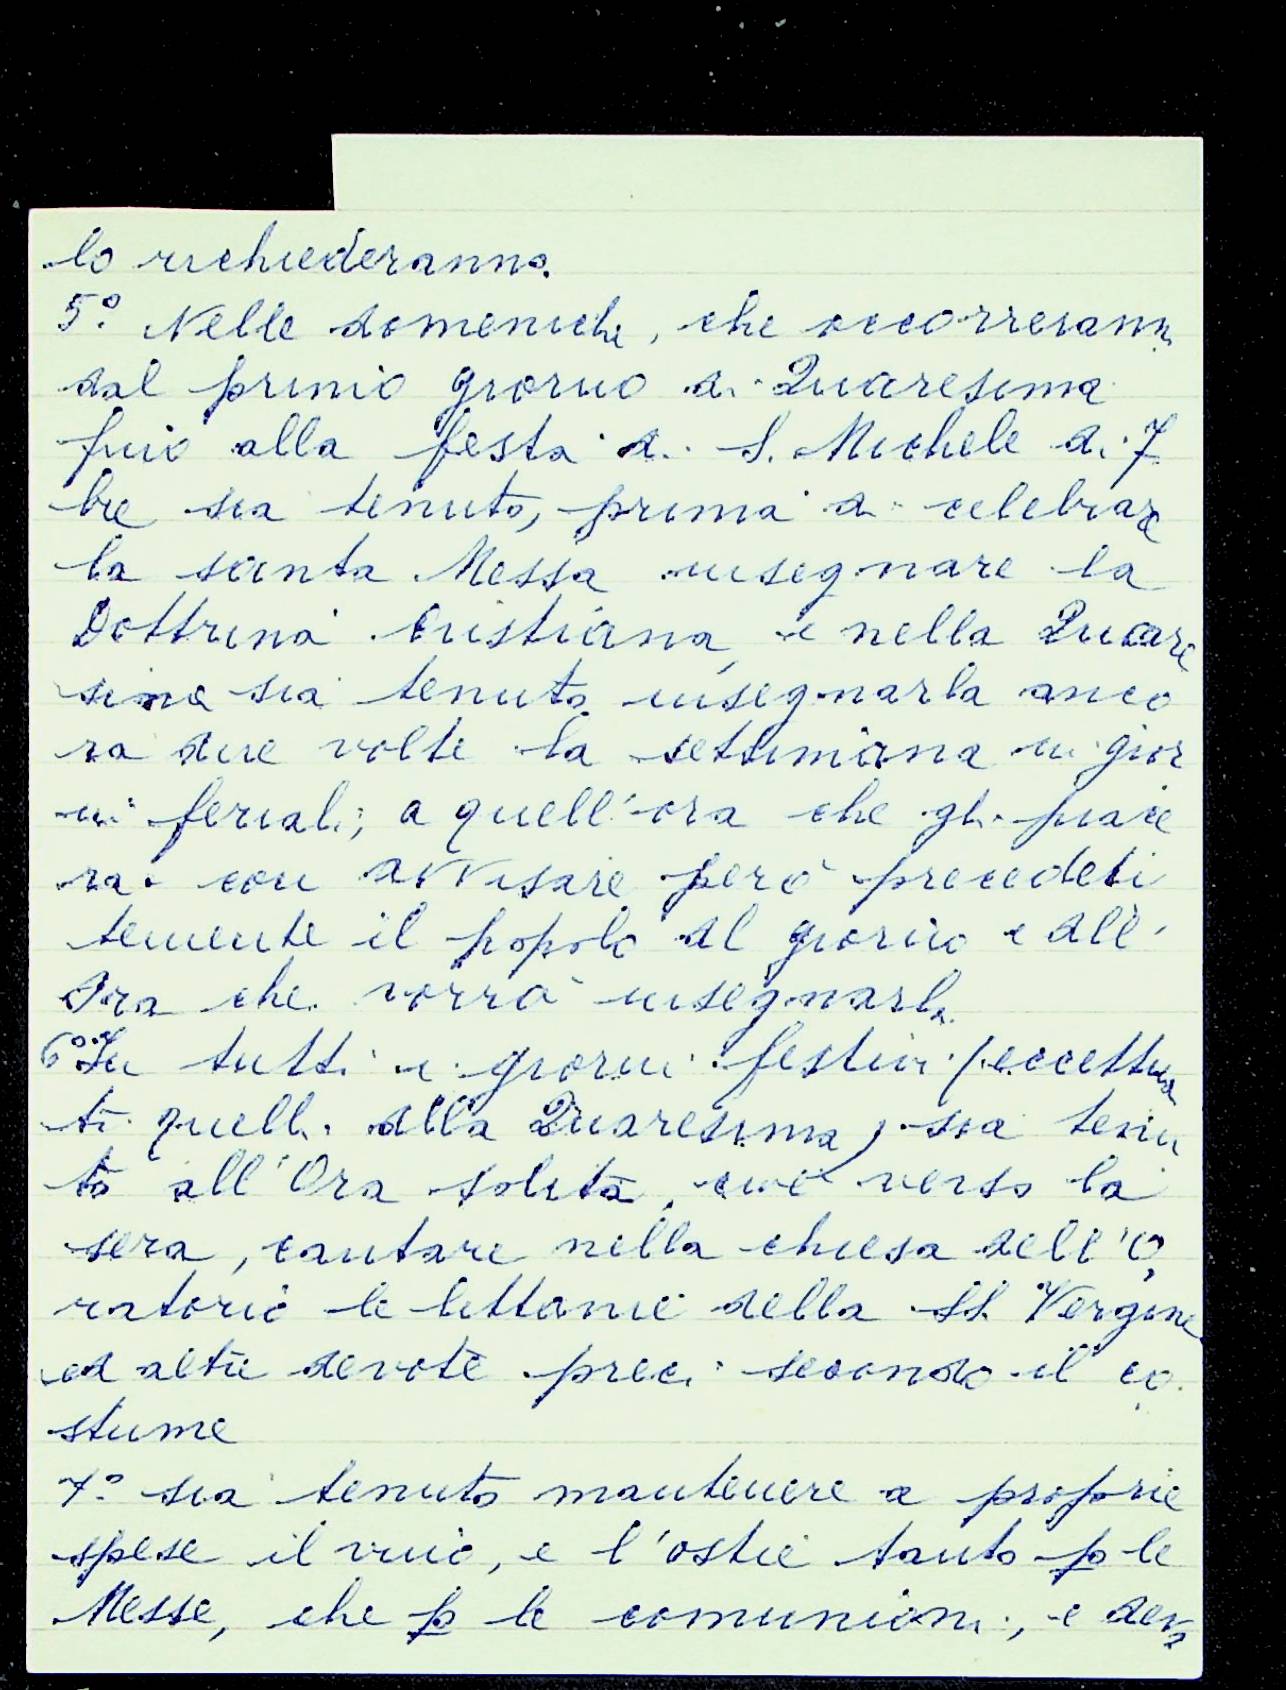 lo richiederanno.
5º. Nelle domeniche, che occorreranno
dal primo giorno di Quaresima
fino alla festa di S. Michele di 7
bre sia tenuto, prima di celebrare
la santa Messa insegnare la
Dottrina Cristiana, e nella Quare
sima sia tenuto insegnarla anco
ra due volte la settimana in gior
ni feriali; a quell'ora che gli piace
rà con avvisare però precedeti
temente il popolo del giorno e dell'
Ora che vorrà insegnarla.
6º. In tutti i giorni festivi (eccettua
ti quelli della Quaresima) sia tenu
to all'Ora solita, cioè verso la
sera, cantare nella chiesa dell'O
ratorio le littanie della SS. Vergine
ed altre devote preci secondo il co
stume
7º. sia tenuto mantenere a proprie
spese il vino, e l'ostie tanto p le
Messe, che p le comunioni, e